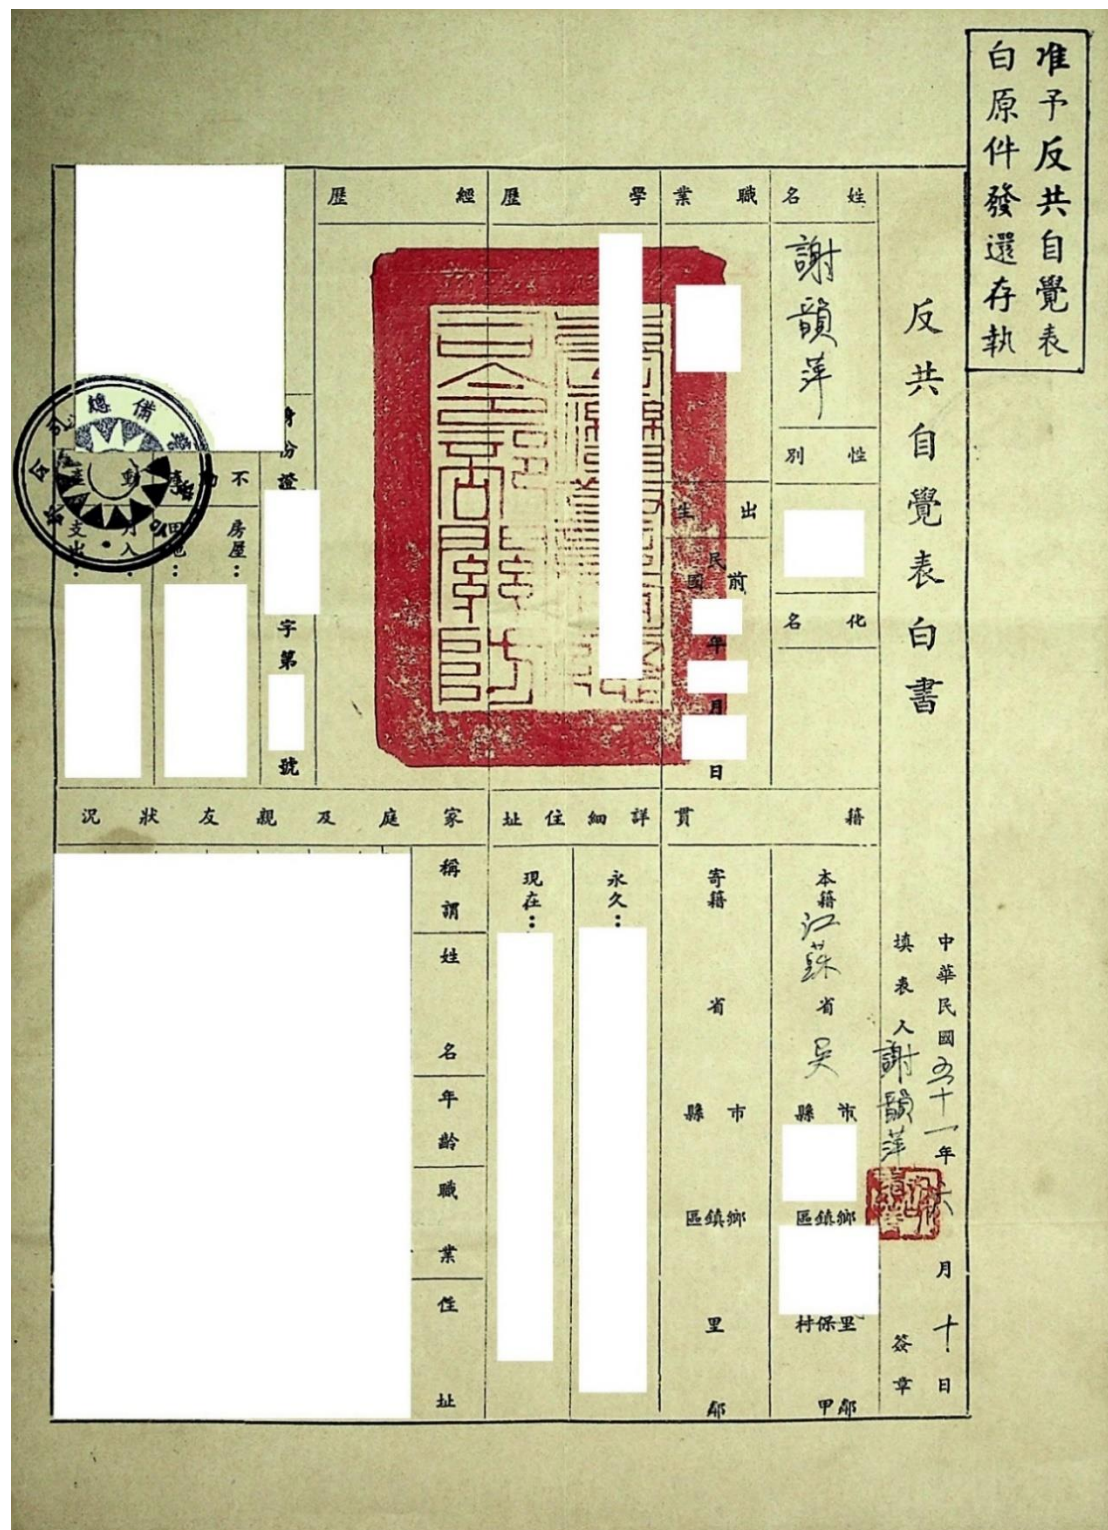 准予反共自覺表
白原件發還存執
反共自覺表白書
中華民國五十一年六月十日
填表人謝韻萍簽章
姓名
謝韻萍
性別
化名
職業
出生
民國前
年
月
日
學歷
經歷
身份證
字第
號
不動產
房屋：
田地：
動產
月入：
支出：
籍貫
本籍江蘇省吳縣市
鄉鎮區
里保村
鄰甲
寄籍
省
市縣
鄉鎮區
里
鄰
詳細住址
永久：
現在：
家庭及親友狀況
稱謂
姓名
年齡
職業
性址